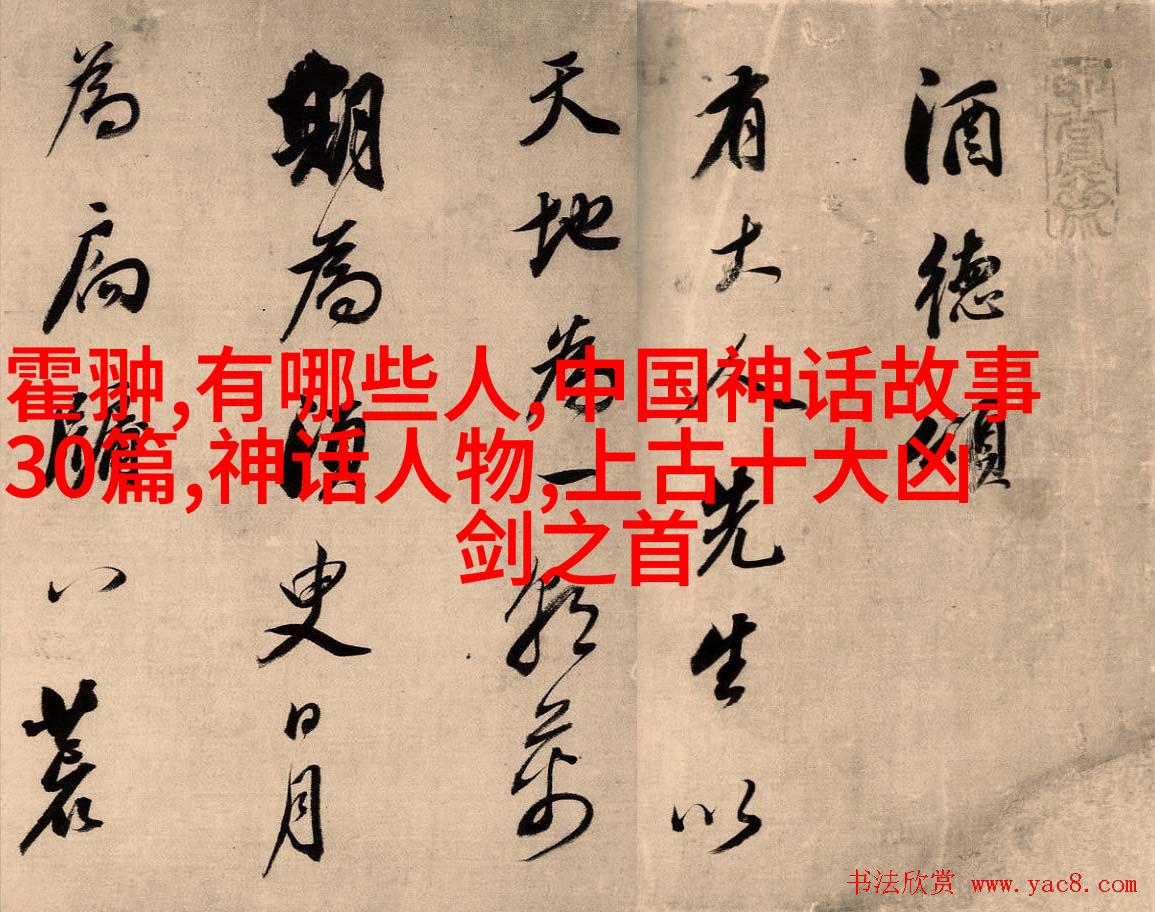 酒德頌
有大人先生以
天地為一朝萬
期為須臾日月
為扃牖八荒
霍翀,有哪些人,中国神话故事
30篇,神话人物,上古十大凶
剑之首
书法欣赏 www.yac8.com